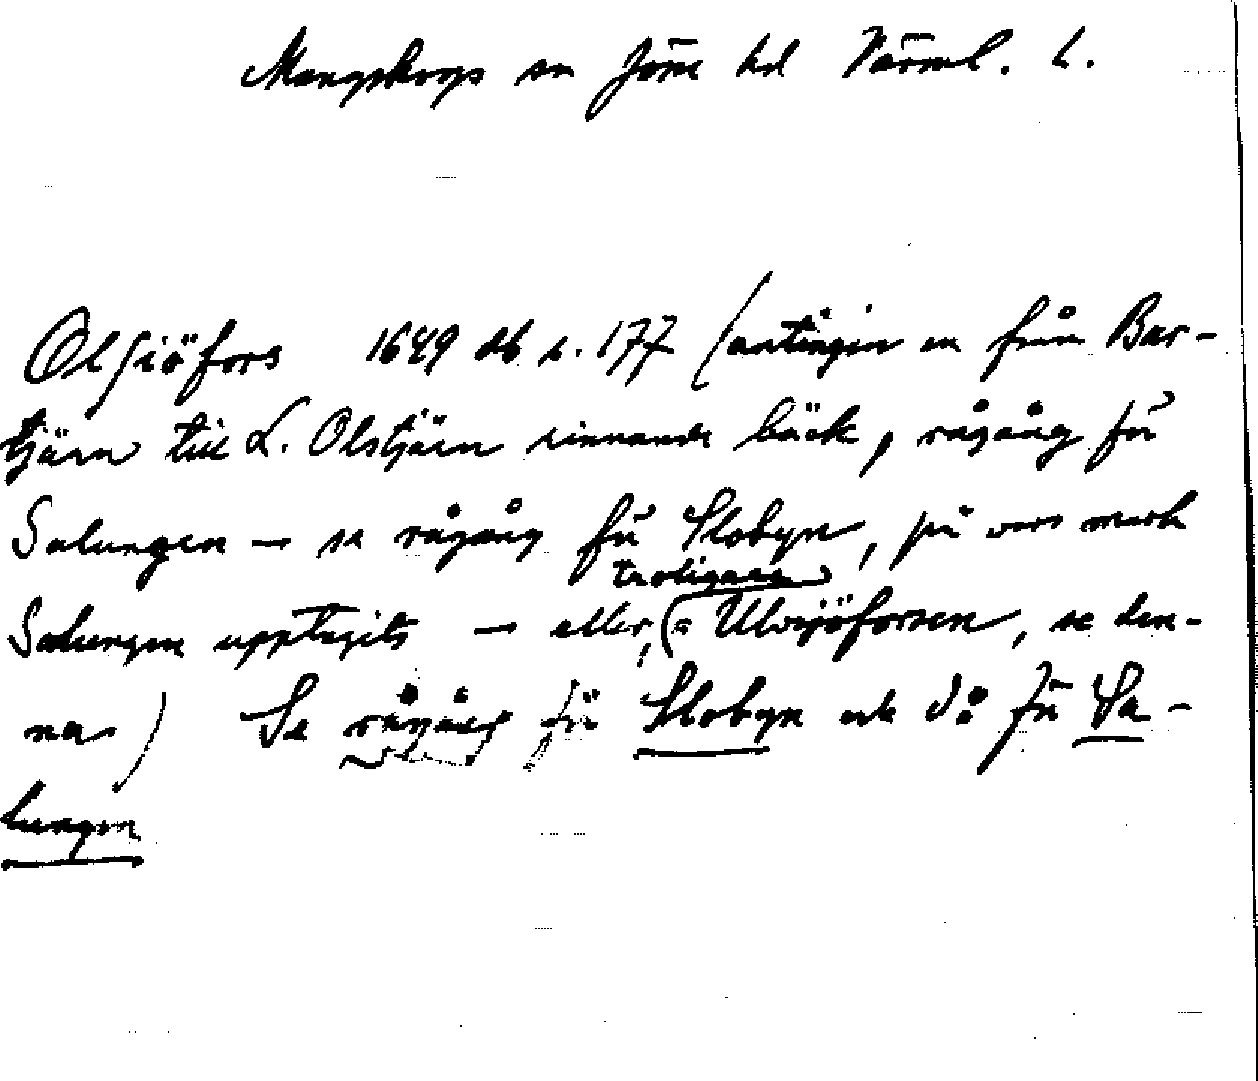 Mangskogs sn Jösse hd Värml. l.
Olsjöfors 1649 db s. 177 (antingen en från Bar-
tjärn till L. Olstjärn rinnande bäck, rågång för
Salungen — se rågång för Slobyn, på vars mark
troligare
Salungen upptagits — eller, (= Ulvsjöforsen, se den-
na) Se rågång för Slobyn och d:o för Sa-
lungen